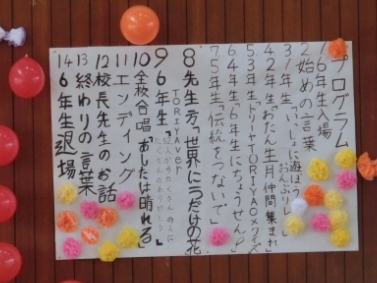 プログラム
1 6年生入場
2 始めの言葉
3 1年生「いっしょに遊ぼう
おんぶりレー」
4 2年生「おたん生月仲間集まれ」
5 3年生「ドリーヤTORIYA○×クイズ」
6 4年生「6年生にちょうせん!」
7 5年生「伝統をつないで」
8 先生方「世界に1つだけの花」
TORIYAver
9 6年生「
10 全校合唱「あしたは晴れる」
11 エンディング
12 校長先生のお話
13 終わりの言葉
14 6年生退場